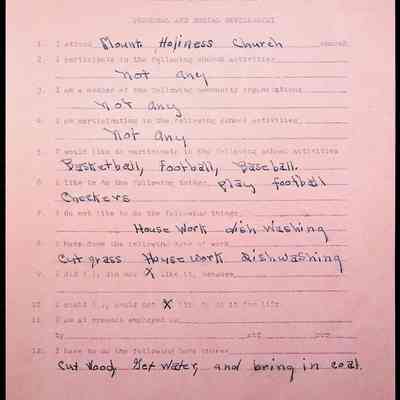 PERSONAL AND SOCIAL DEVELOPMENT
1. I attend Mount Holiness Church church.
2. I participate in the following church activities
not any
3. I am a member of the following community organizations
not any
4. I am participating in the following school activities
not any
5. I would like to participate in the following school activities
Basketball, Football, Baseball.
6. I like to do the following things. play football
Checkers
7. I do not like to do the following things.
House Work dish washing
8. I have done the following type of work
Cut grass House work dishwashing
9. I did ( ), did not X like it, because
10. I would ( ), would not X like to do it for life.
11. I am at present employed as
by at per
12. I have to do the following home chores
Cut Wood, Get Water, and bring in coal.